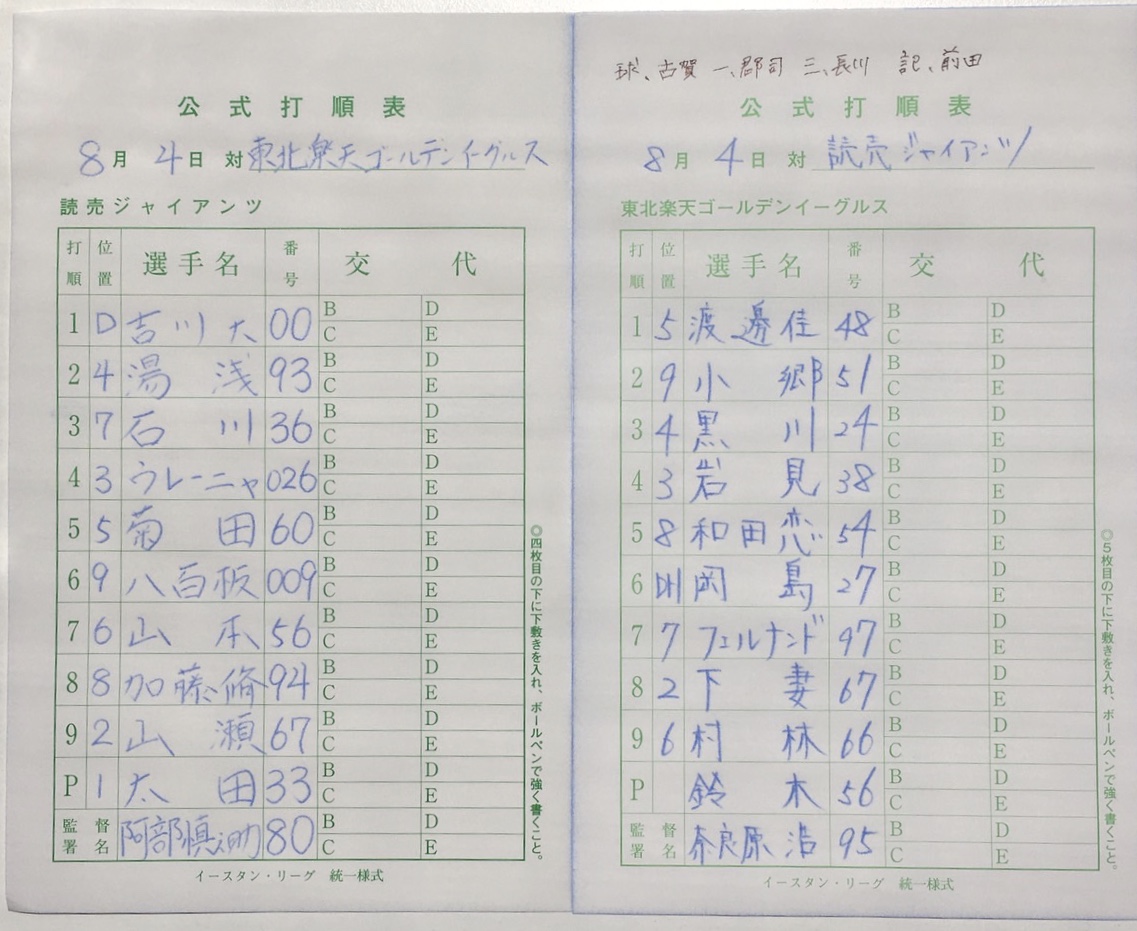 公式打順表
8月 4日 対 東北楽天ゴールデンイーグルス
読売ジャイアンツ
打順 位置 選手名 番号 交代
1 D 吉川大 00 B D C E
2 4 湯浅 93 B D C E
3 7 石川 36 B D C E
4 3 ウレーニャ 026 B D C E
5 5 菊田 60 B D C E
6 9 八百板 009 B D C E
7 6 山本 56 B D C E
8 8 加藤脩 94 B D C E
9 2 山瀬 67 B D C E
P 1 太田 33 B D C E
監督署名 阿部慎之助 80 B D C E
◎四枚目の下に下敷きを入れ、ボールペンで強く書くこと。
イースタン・リーグ 統一様式
球、古賀 一、郡司 三、長川 記、前田
公式打順表
8月 4日 対 読売ジャイアンツ
東北楽天ゴールデンイーグルス
打順 位置 選手名 番号 交代
1 5 渡邊佳 48 B D C E
2 9 小郷 51 B D C E
3 4 黒川 24 B D C E
4 3 岩見 38 B D C E
5 8 和田恋 54 B D C E
6 DH 岡島 27 B D C E
7 7 フェルナンド 97 B D C E
8 2 下妻 67 B D C E
9 6 村林 66 B D C E
P 鈴木 56 B D C E
監督署名 奈良原浩 95 B D C E
◎5枚目の下に下敷きを入れ、ボールペンで強く書くこと。
イースタン・リーグ 統一様式